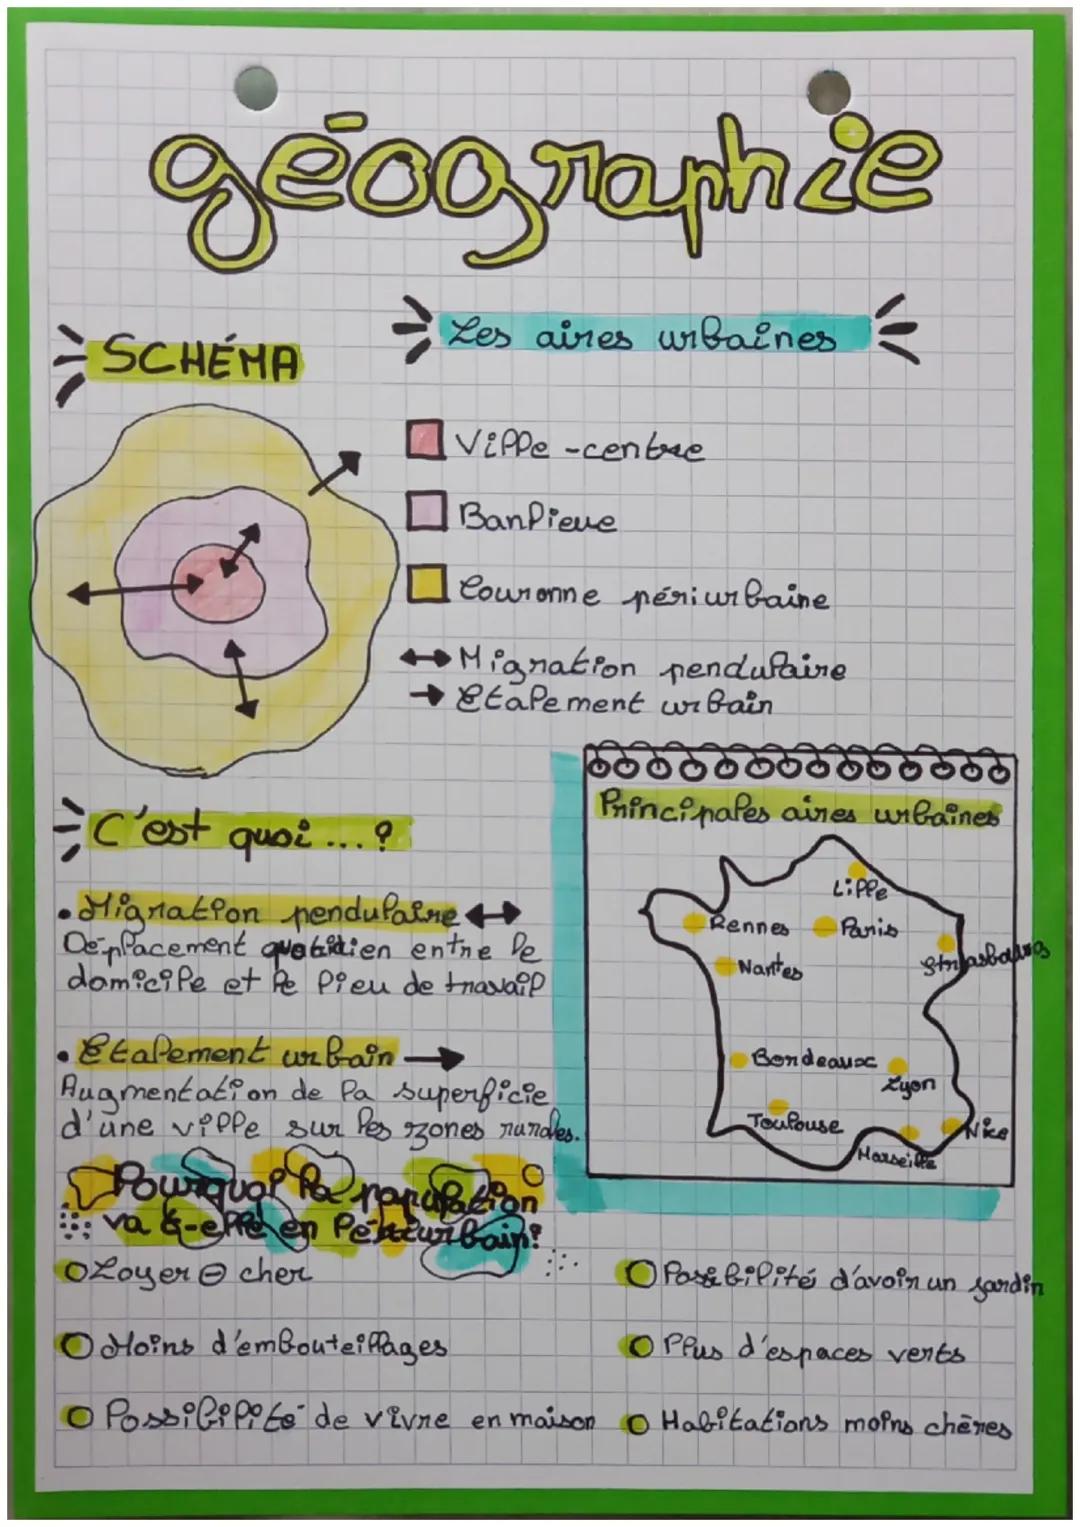 géographie
Les aires urbaines
SCHÉMA
Ville-centre
Banlieue
Couronne périurbaine
Migration pendulaire
Etalement urbain
C'est quoi ... ?
• Migration pendulaire
Déplacement quotidien entre le
domicile et le lieu de travail
• Etalement urbain
Augmentation de la superficie
d'une ville sur les zones rurales.
Principales aires urbaines
Lille
Rennes
Paris
Strasbourg
Nantes
Bordeaux
Lyon
Toulouse
Nice
Marseille
Pourquoi la population
va t-elle en Périurbain?
Loyer ⊖ cher
Moins d'embouteillages
Possibilité de vivre en maison
Possibilité d'avoir un jardin
Plus d'espaces verts
Habitations moins chères